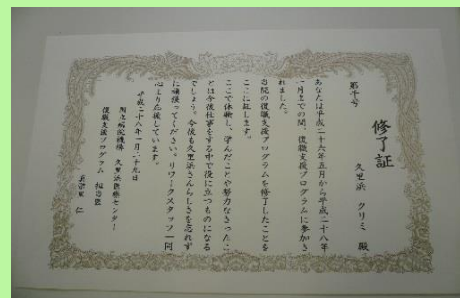 第千号
修了証
久里浜 クリミ 殿
あなたは平成二十六年五月から平成二十八年
一月までの間、復職支援プログラムに参加さ
れました。
当院の復職支援プログラムを修了したことを
ここに証します。
ここで体験し、学んだことや努力なさったこ
とは今後仕事をする中で役に立つものになる
でしょう。今後も久里浜さんらしさを忘れず
に頑張ってください。リワークスタッフ一同
心より応援しています。
平成二十八年一月二十九日
国立病院機構 久里浜医療センター
復職支援プログラム 担当医